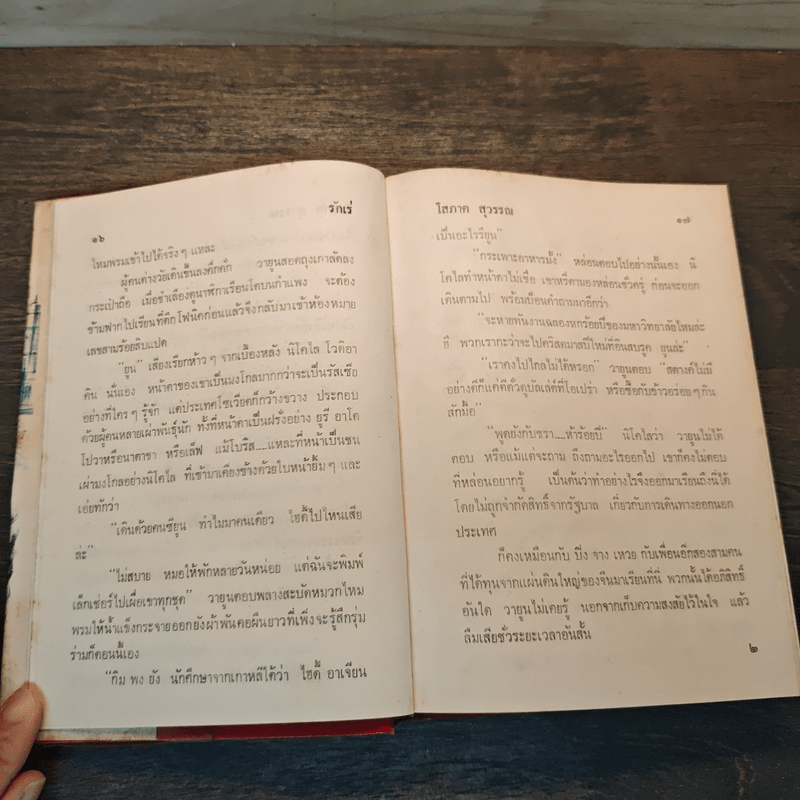 ๑๖
รักเร่
ไหมพรมเข้าไปได้จริงๆ แหละ
ผู้คนต่างวัยเดินขึ้นลงคึกคัก วายูนสอดถุงเกาลัดลง
กระเป๋าถือ เมื่อชำเลืองดูนาฬิกาเรือนโตบนกำแพง จะต้อง
ข้ามฟากไปเรียนที่ตึกโฟนิคก่อนแล้วจึงกลับมาเข้าห้องหมาย
เลขสามร้อยสิบแปด
"ยูน" เสียงเรียกห้าวๆ จากเบื้องหลัง นิโคไล โวดิอา
คิน นั่นเอง หน้าตาของเขาเป็นมงโกลมากกว่าจะเป็นรัสเซีย
อย่างที่ใครๆ รู้จัก แต่ประเทศโซเวียตก็กว้างขวาง ประกอบ
ด้วยผู้คนหลายเผ่าพันธุ์นัก ทั้งที่หน้าตาเป็นฝรั่งอย่าง ยูรี อาโค
โปวาหรือนาตาชา หรือเล็ฟ แม้โบริส....แหละที่หน้าเป็นชน
เผ่ามงโกลอย่างนิโคไล ที่เข้ามาเคียงข้างด้วยใบหน้ายิ้มๆ และ
เอ่ยทักว่า
"เดินด้วยคนซียูน ทำไมมาคนเดียว ไฮดี้ไปไหนเสีย
ล่ะ"
"ไม่สบาย หมอให้พักหลายวันหน่อย แต่ฉันจะพิมพ์
เล็กเชอร์ไปเผื่อเขาทุกชุด" วายูนตอบพลางสะบัดหมวกไหม
พรมให้น้ำแข็งกระจายออกยังผ้าพันคอผืนยาวที่เพิ่งจะรู้สึกรุ่ม
ร่ามก็ตอนนี้เอง
"กิม พง ยัง นักศึกษาจากเกาหลีใต้ว่า ไฮดี้ อาเจียน
โสภาค สุวรรณ
๑๗
เป็นอะไรรึยูน"
"กระเพาะอาหารมั้ง" หล่อนตอบไปอย่างนั้นเอง นิ
โคไลทำหน้าตาไม่เชื่อ เขาหรี่ตามองหล่อนชั่วครู่ ก่อนจะออก
เดินตามไป พร้อมป้อนคำถามมาอีกว่า
"จะหายทันงานฉลองหกร้อยปีของมหาวิทยาลัยไหมล่ะ
ฮึ พวกเรากะว่าจะไปคริสตมาสปีใหม่ที่อินสบรูค ยูนล่ะ"
"เราคงไปไกลไม่ได้หรอก" วายูนตอบ "สตางค์ไม่มี
อย่างดีก็แค่ตีตั๋วดูบัลเล่ต์ที่โอเปร่า หรือซื้อกับข้าวอร่อยๆ กิน
สักมื้อ"
"พูดยังกับชรา....ห้าร้อยปี" นิโคไลว่า วายูนไม่ได้
ตอบ หรือแม้แต่จะถาม ถึงถามอะไรออกไป เขาก็คงไม่ตอบ
ที่หล่อนอยากรู้ เป็นต้นว่าทำอย่างไรจึงออกมาเรียนถึงนี่ได้
โดยไม่ถูกจำกัดสิทธิ์จากรัฐบาล เกี่ยวกับการเดินทางออกนอก
ประเทศ
ก็คงเหมือนกับ ปิง จาง เหวย กับเพื่อนอีกสองสามคน
ที่ได้ทุนจากแผ่นดินใหญ่ของจีนมาเรียนที่นี่ พวกนั้นได้อภิสิทธิ์
อันใด วายูนไม่เคยรู้ นอกจากเก็บความสงสัยไว้ในใจ แล้ว
ลืมเสียชั่วระยะเวลาอันสั้น
๒